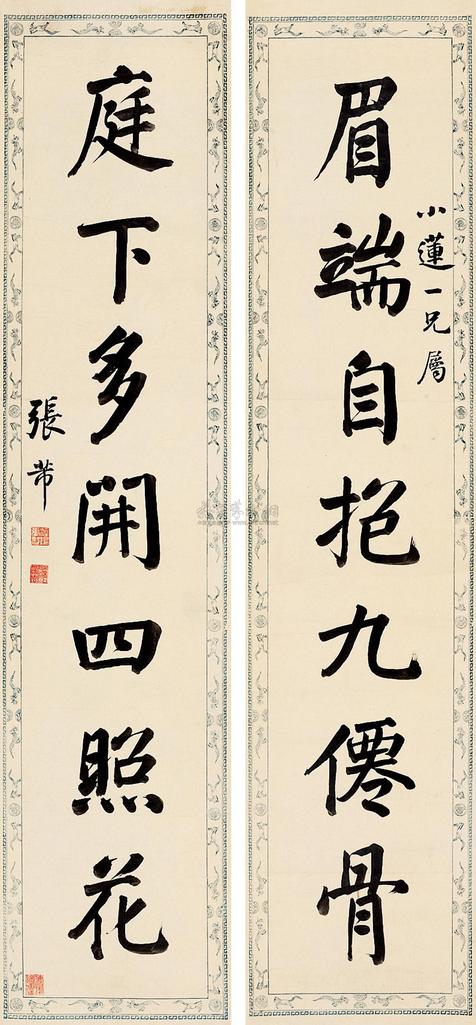 眉端自抱九僊骨
小蓮一兄屬
庭下多開四照花
張芾